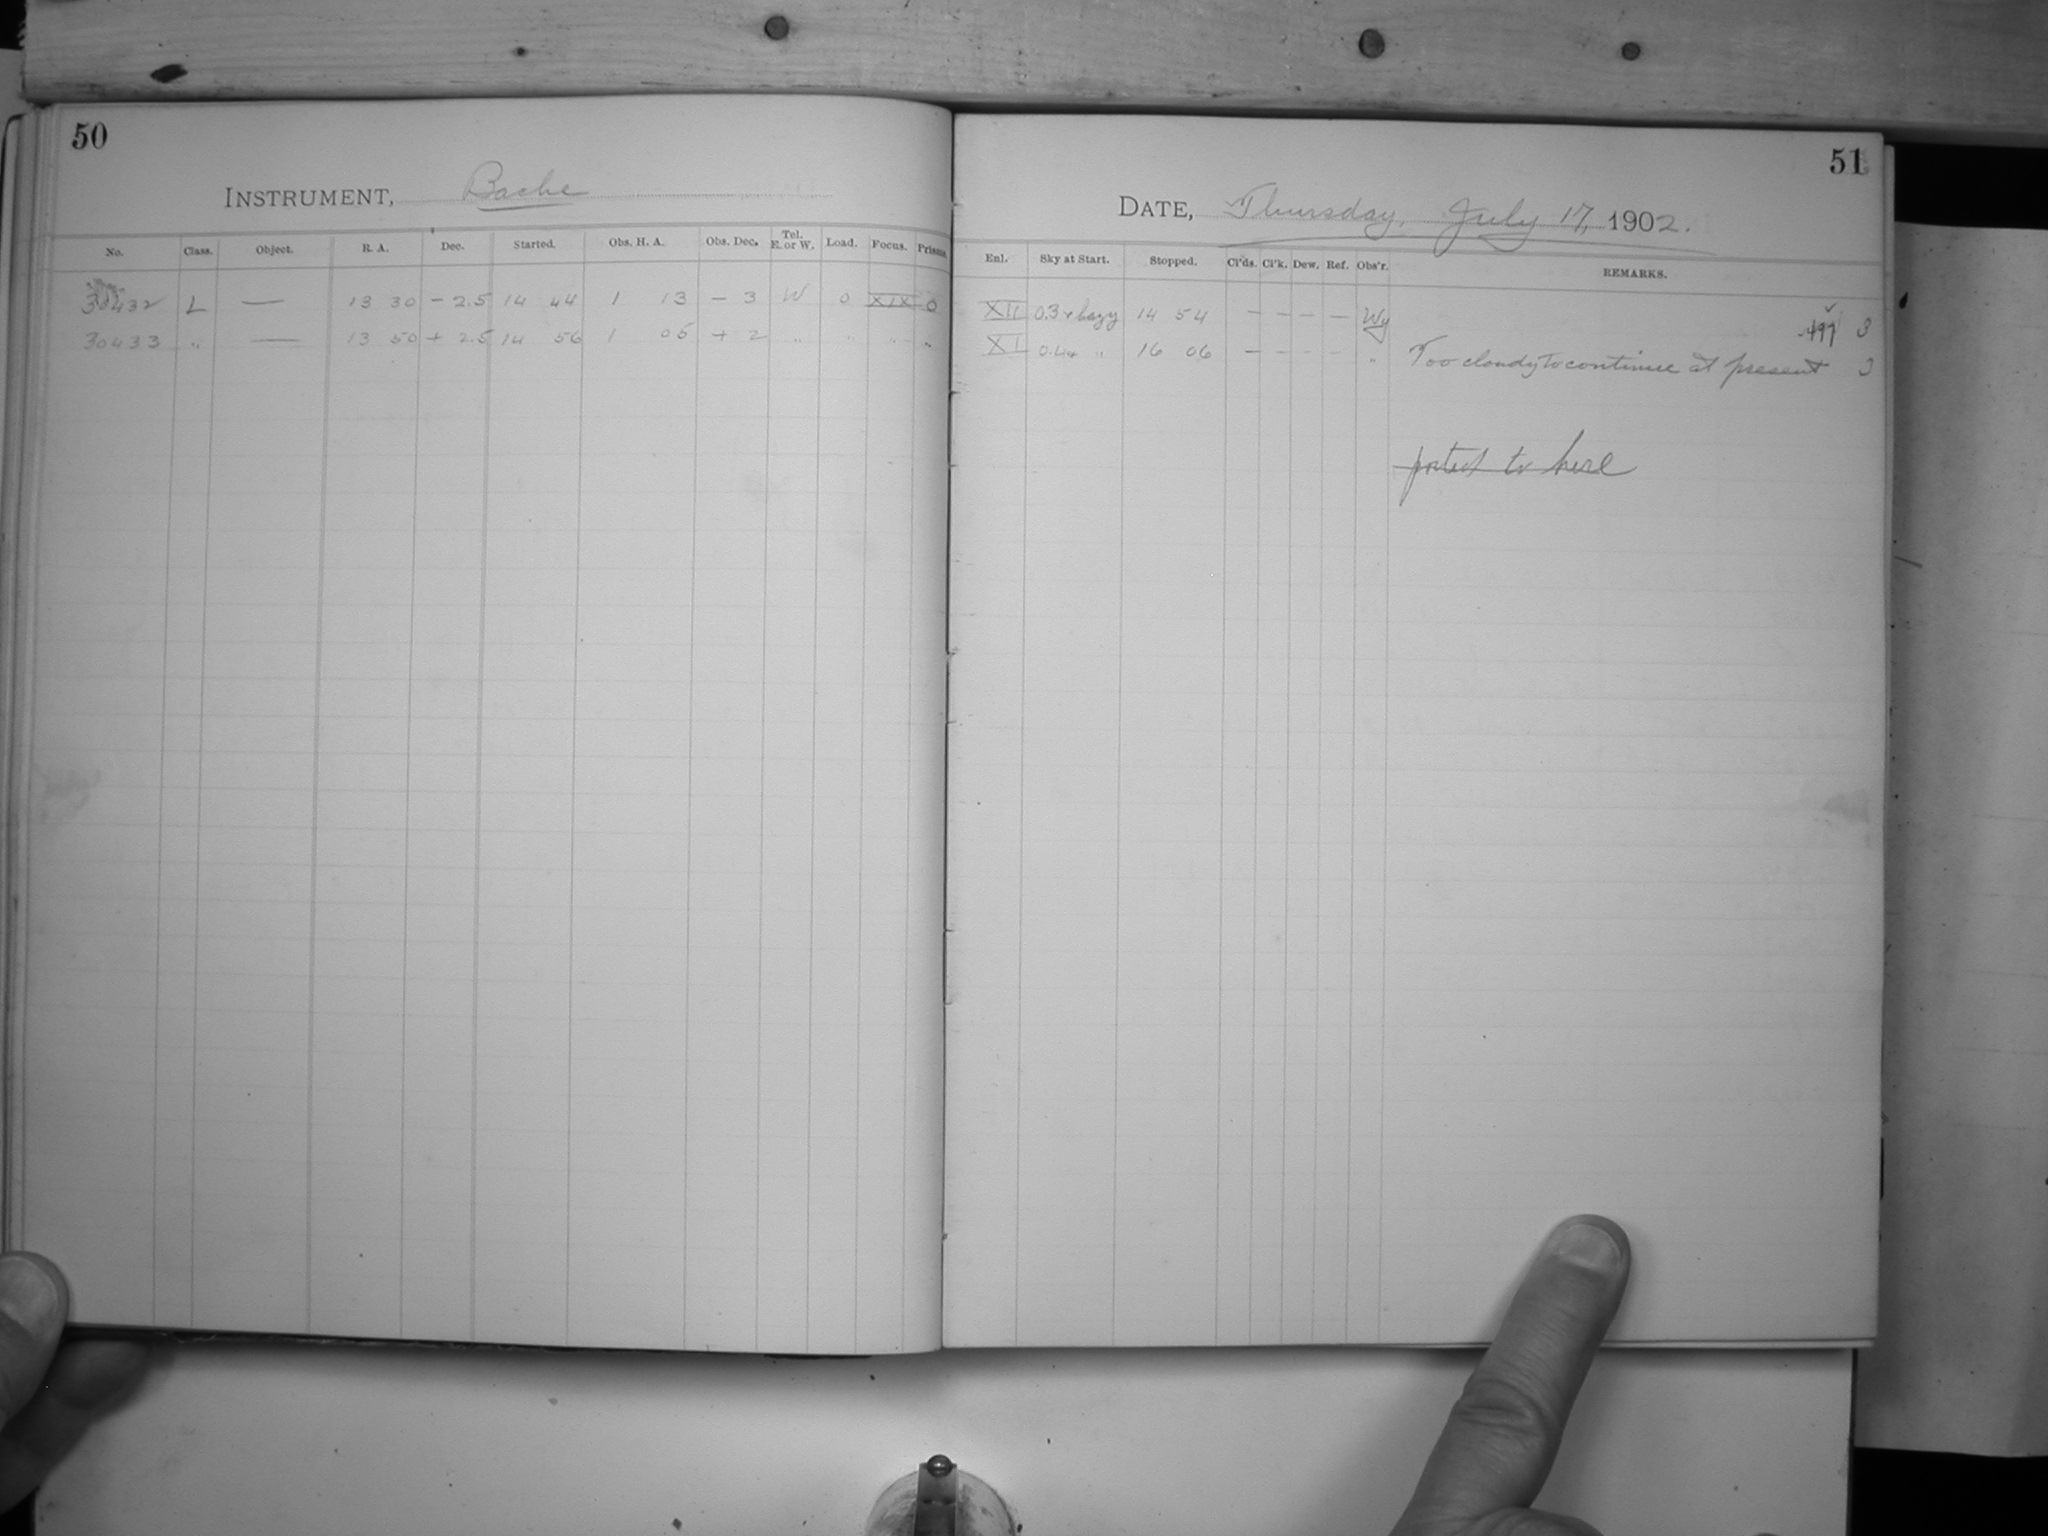 50
INSTRUMENT, Bache
No. Class. Object. R. A. Dec. Started. Obs. H. A. Obs. Dec. Tel. E. or W. Load. Focus. Prisms.
30432 L — 13 30 - 2.5 14 44 1 13 - 3 W 0 XIX 0
30433 " — 13 50 + 2.5 14 56 1 05 + 2 " " " "
51
DATE, Thursday, July 17, 1902.
Enl. Sky at Start. Stopped. Cl'ds. Cl'k. Dew. Ref. Obs'r. REMARKS.
XII 0.3 hazy 14 54 — — — — Wy 497 3
XI 0.4 " 16 06 — — — — " Too cloudy to continue at present 3
posted to here